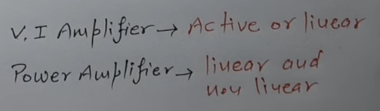 V. I Amplifier → Active or linear
Power Amplifier → linear and
non linear